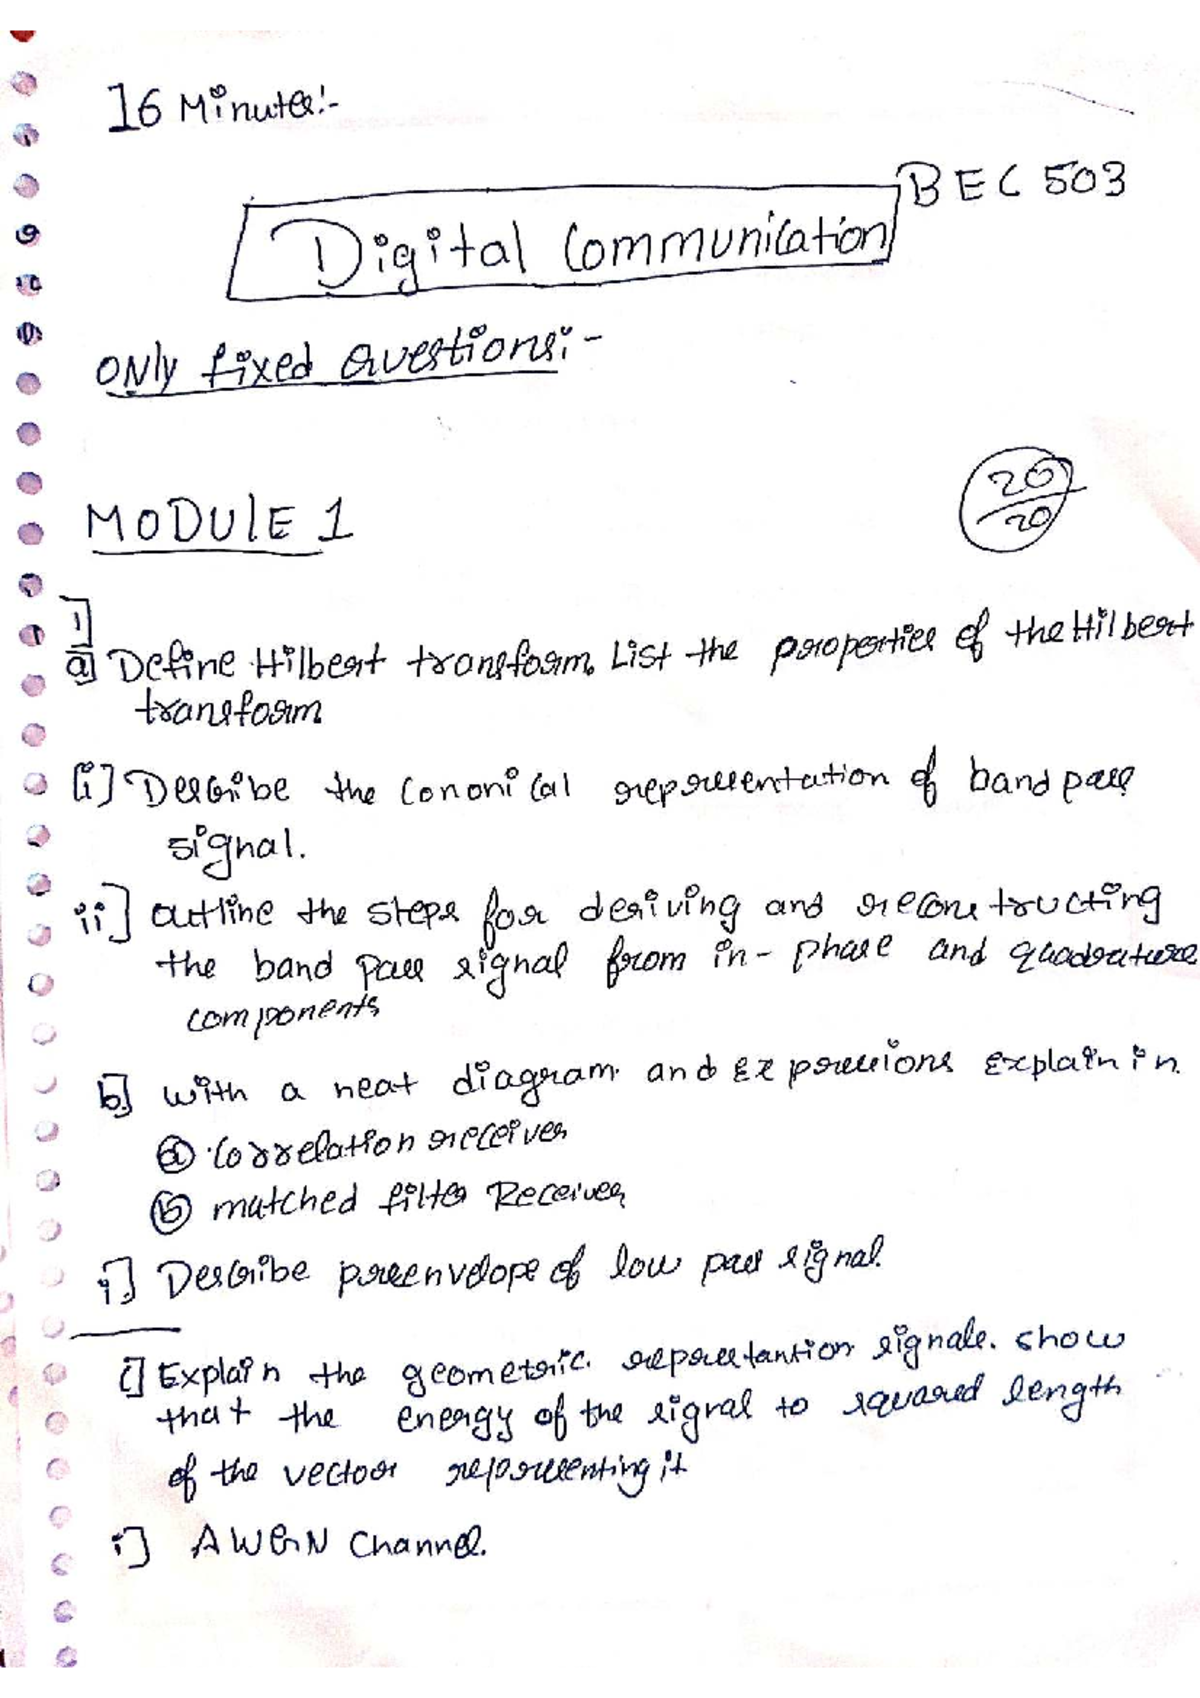 16 Minutes:-
BEC 503
Digital Communication
ONly fixed Questions:-
MODULE 1
20/20
1]
a] Define Hilbert transform. List the properties of the Hilbert
transform
[i] Describe the Cononical representation of band pass
signal.
ii] outline the steps for deriving and reconstructing
the band pass signal from in-phase and quadrature
components
b] with a neat diagram and Expressions Explain in
a correlation receiver
b matched filter Receiver
i] Describe preenvelope of low pass signal.
i] Explain the geometric representantion signals. show
that the energy of the signal to squared length
of the vector representing it
i] AWGN Channel.